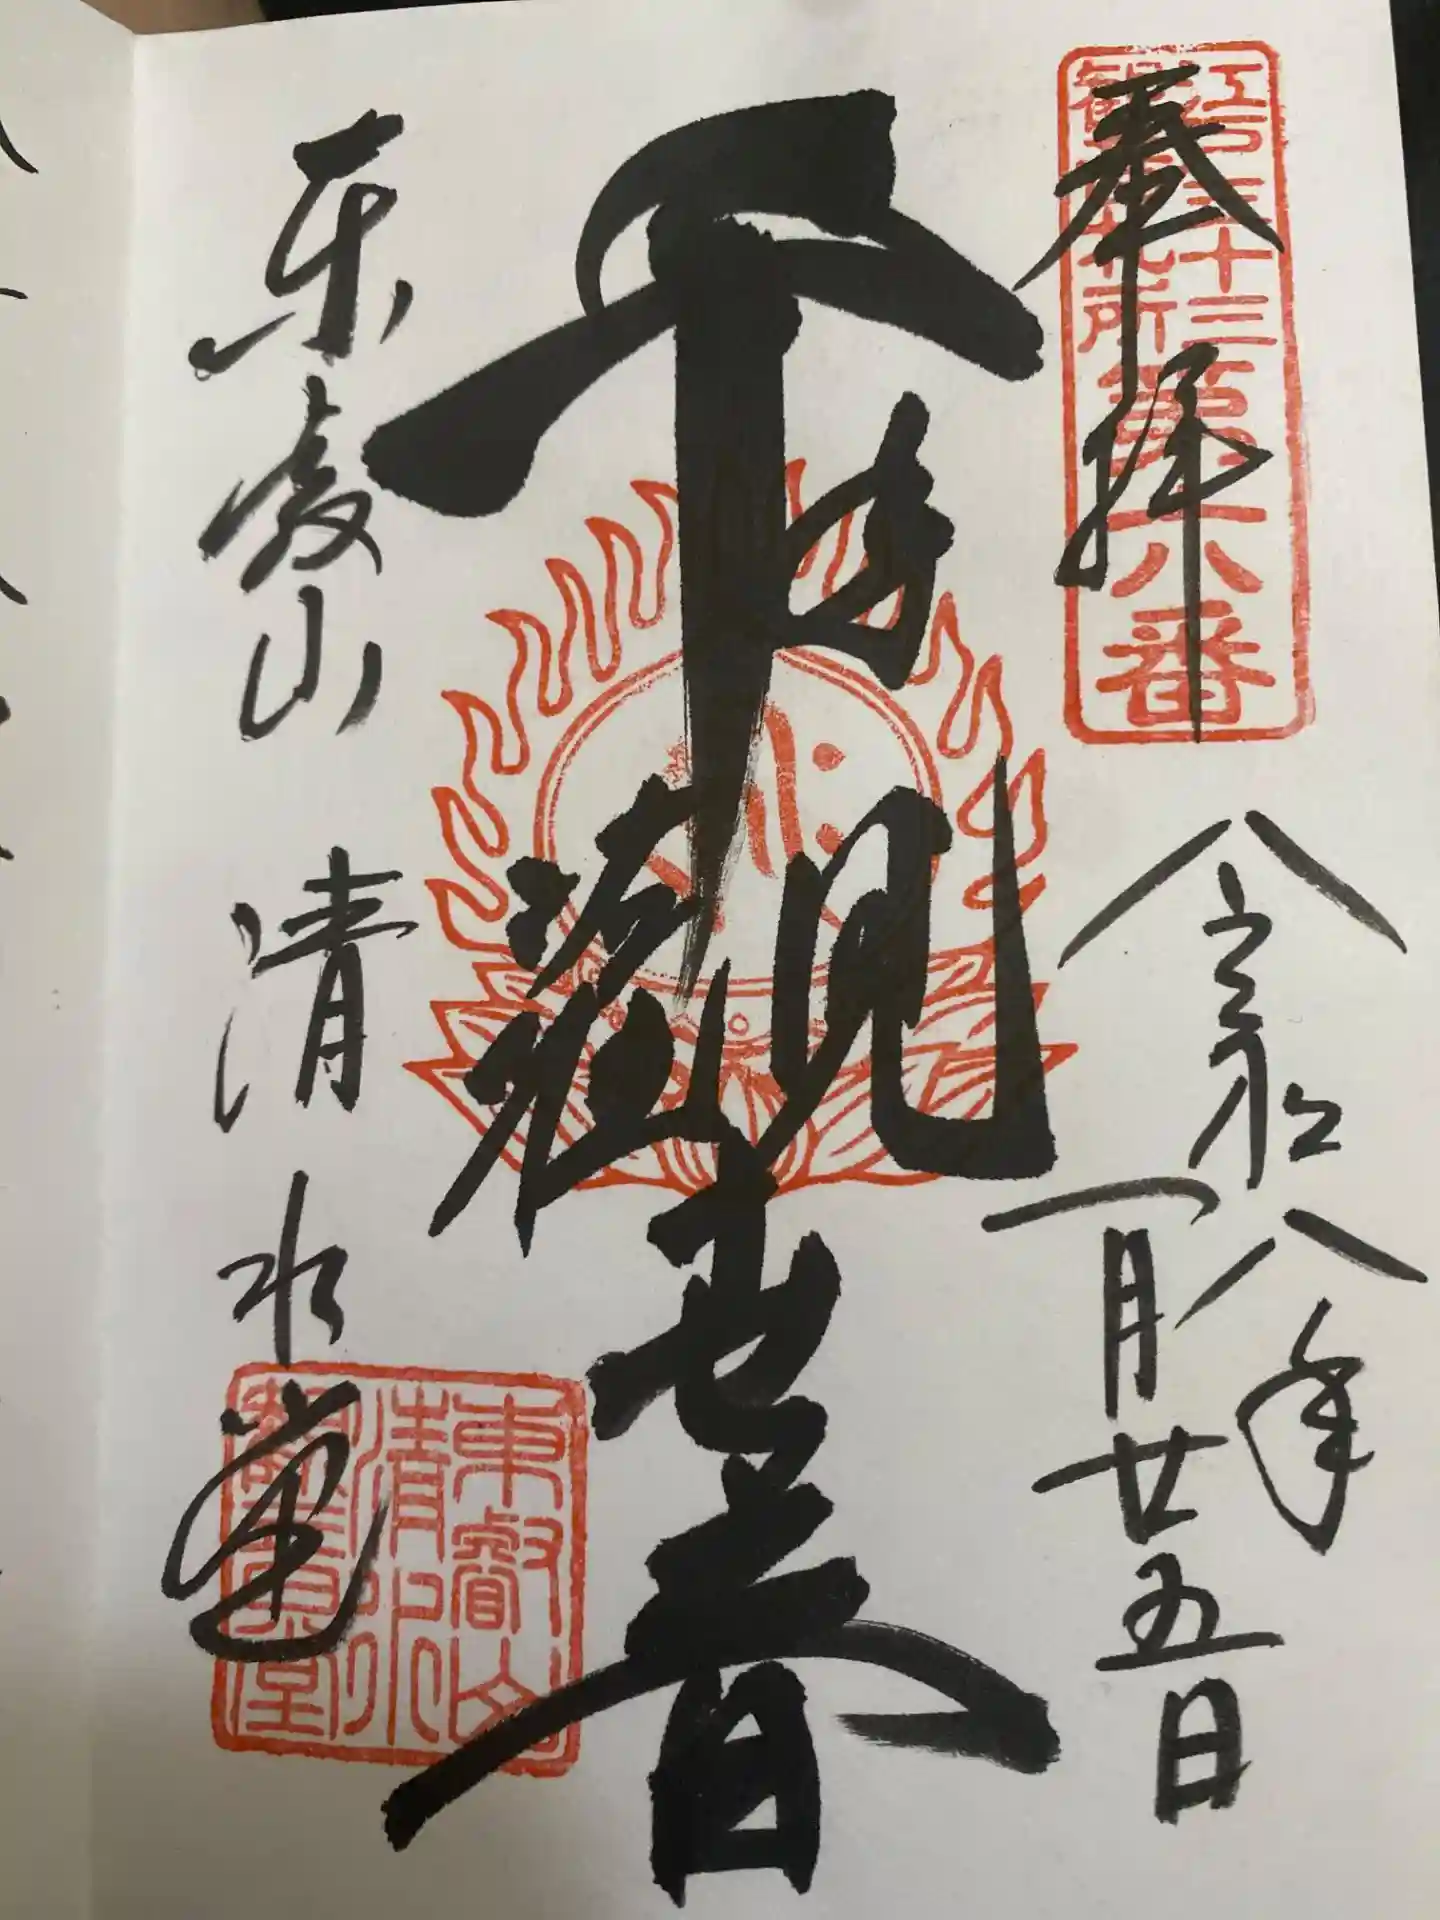 奉拝
江戸三十三
観音札所
第六番
令和八年
一月廿五日
千手觀世音
东叡山 清水堂
東叡山
清水
觀音堂